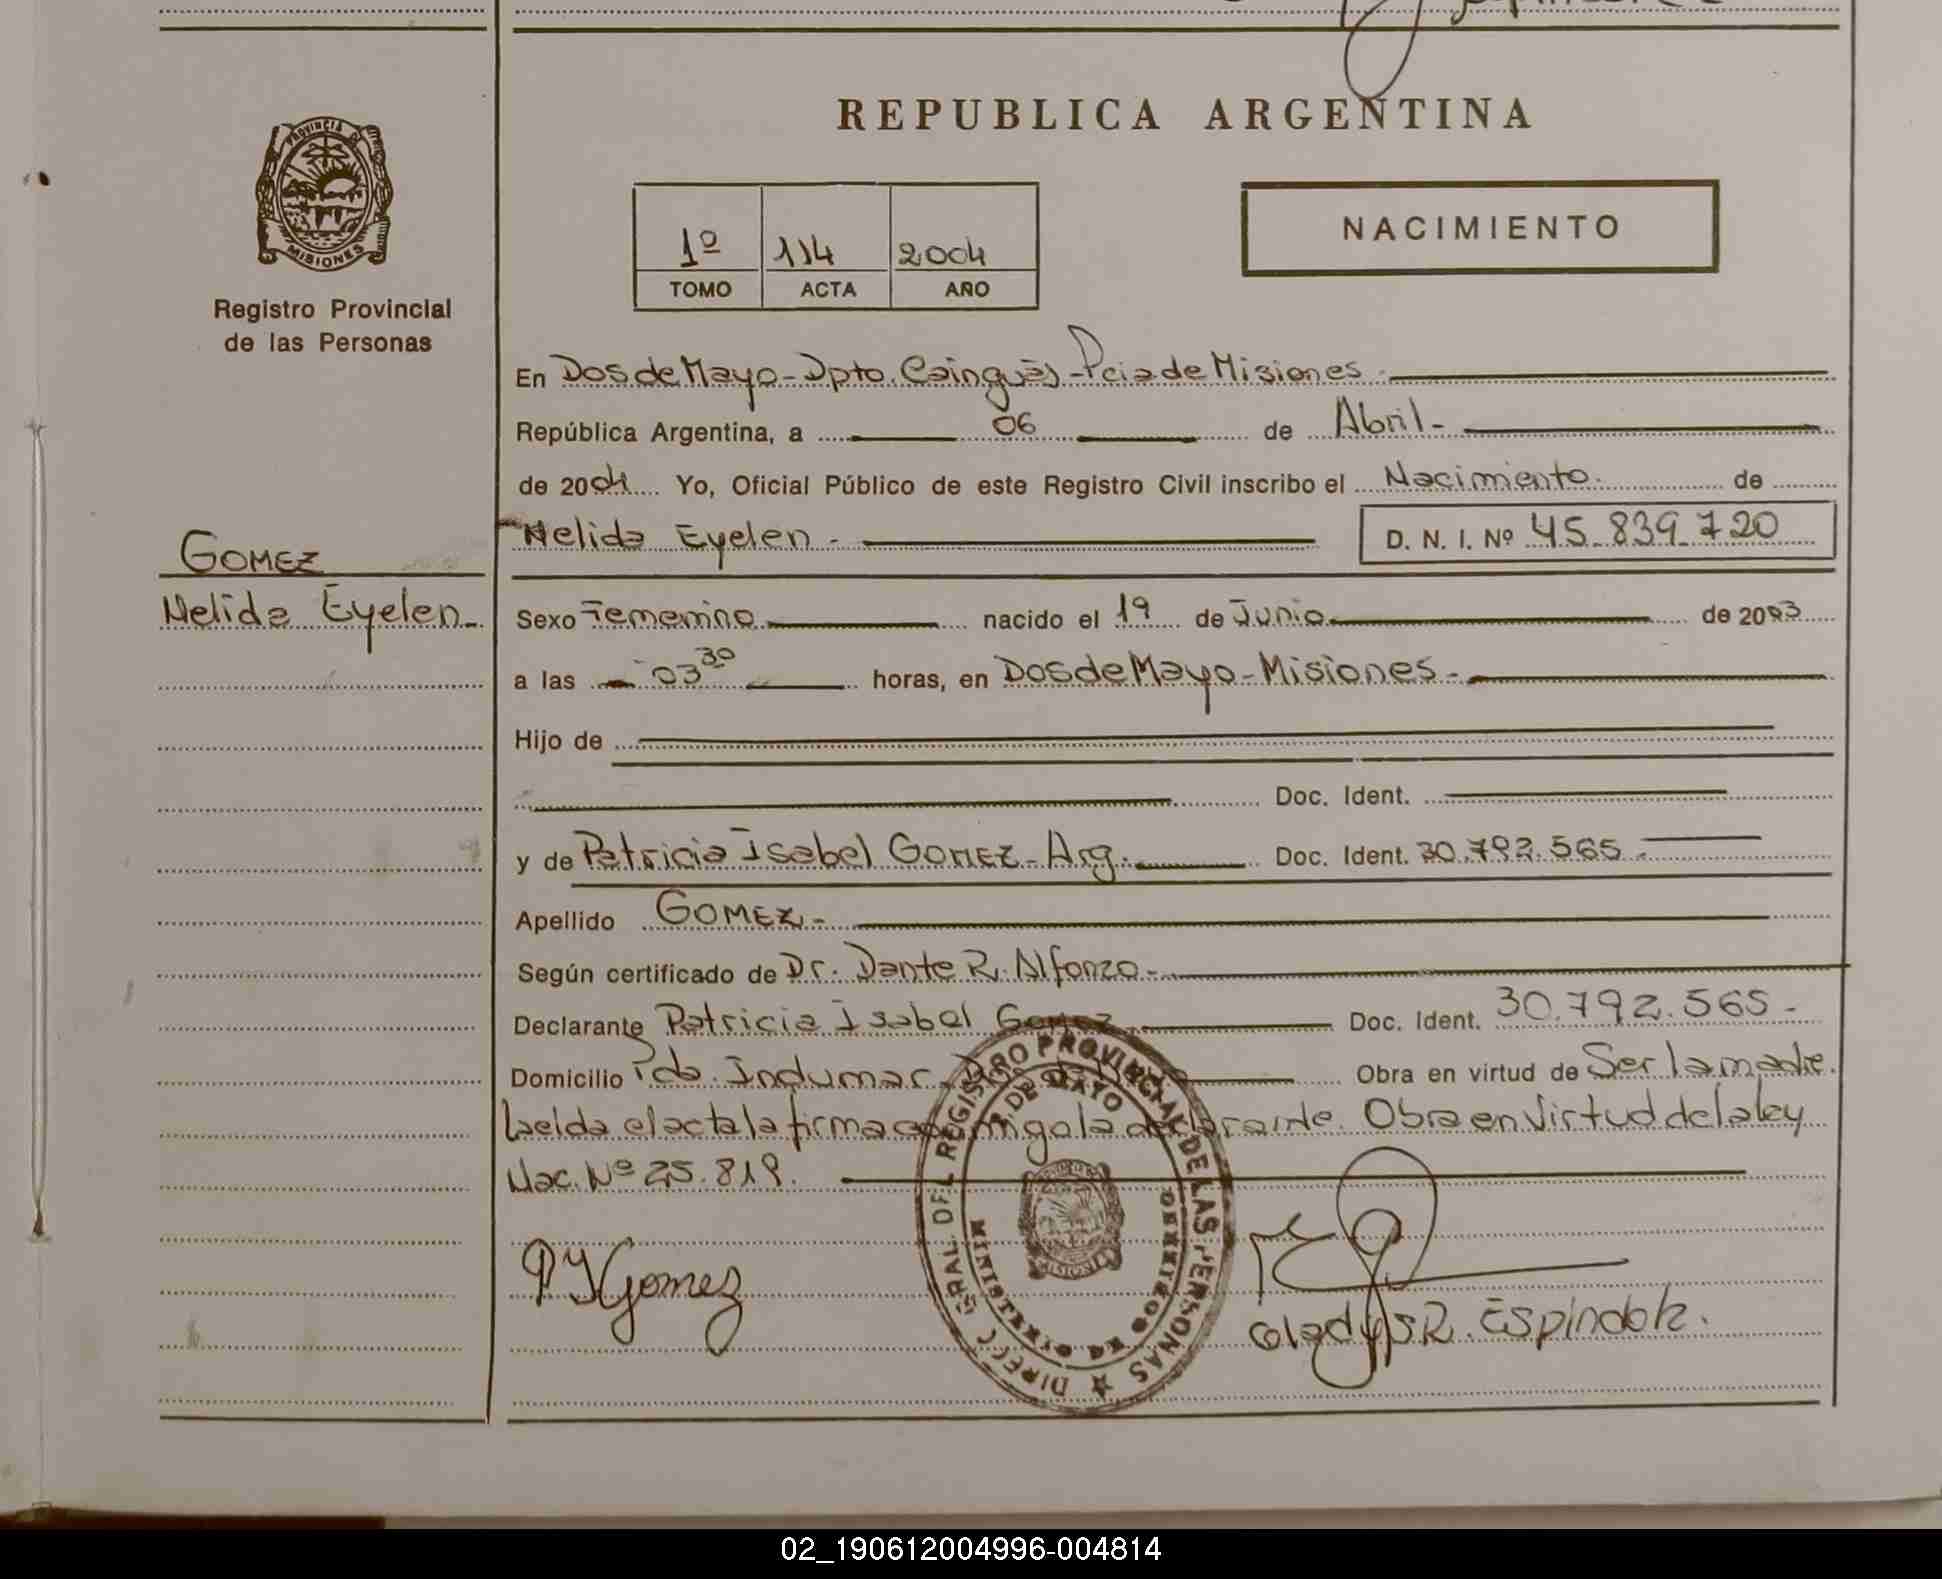 REPUBLICA ARGENTINA
PROVINCIA DE
MISIONES
Registro Provincial
de las Personas
1º 114 2004
TOMO ACTA AÑO
NACIMIENTO
En Dos de Mayo - Dpto. Cainguás - Pcia de Misiones
República Argentina, a 06 de Abril -
de 2004 Yo, Oficial Público de este Registro Civil inscribo el Nacimiento de
Nelida Eyelen - D. N. I. Nº 45.839.720
GOMEZ
Nelida Eyelen -
Sexo Femenino nacido el 19 de Junio de 2003
a las - 03 30 horas, en Dos de Mayo - Misiones -
Hijo de
Doc. Ident.
y de Patricia Isabel GOMEZ - Arg. Doc. Ident. 30.792.565 -
Apellido GOMEZ -
Según certificado de Dr. Dante R. Alfonzo -
Declarante Patricia Isabel Gomez Doc. Ident. 30.792.565 -
Domicilio Pdo. Indumar - Obra en virtud de Ser la madre.
Leida el acta la firma conmigo la declarante. Obra en Virtud de la ley
Nac. Nº 25.819.
DIREC. GRAL. DEL REGISTRO PROVINCIAL DE LAS PERSONAS
DOS DE MAYO
MINISTERIO DE GOBIERNO
P I Gomez
Gladys R. Espindola.
02_190612004996-004814